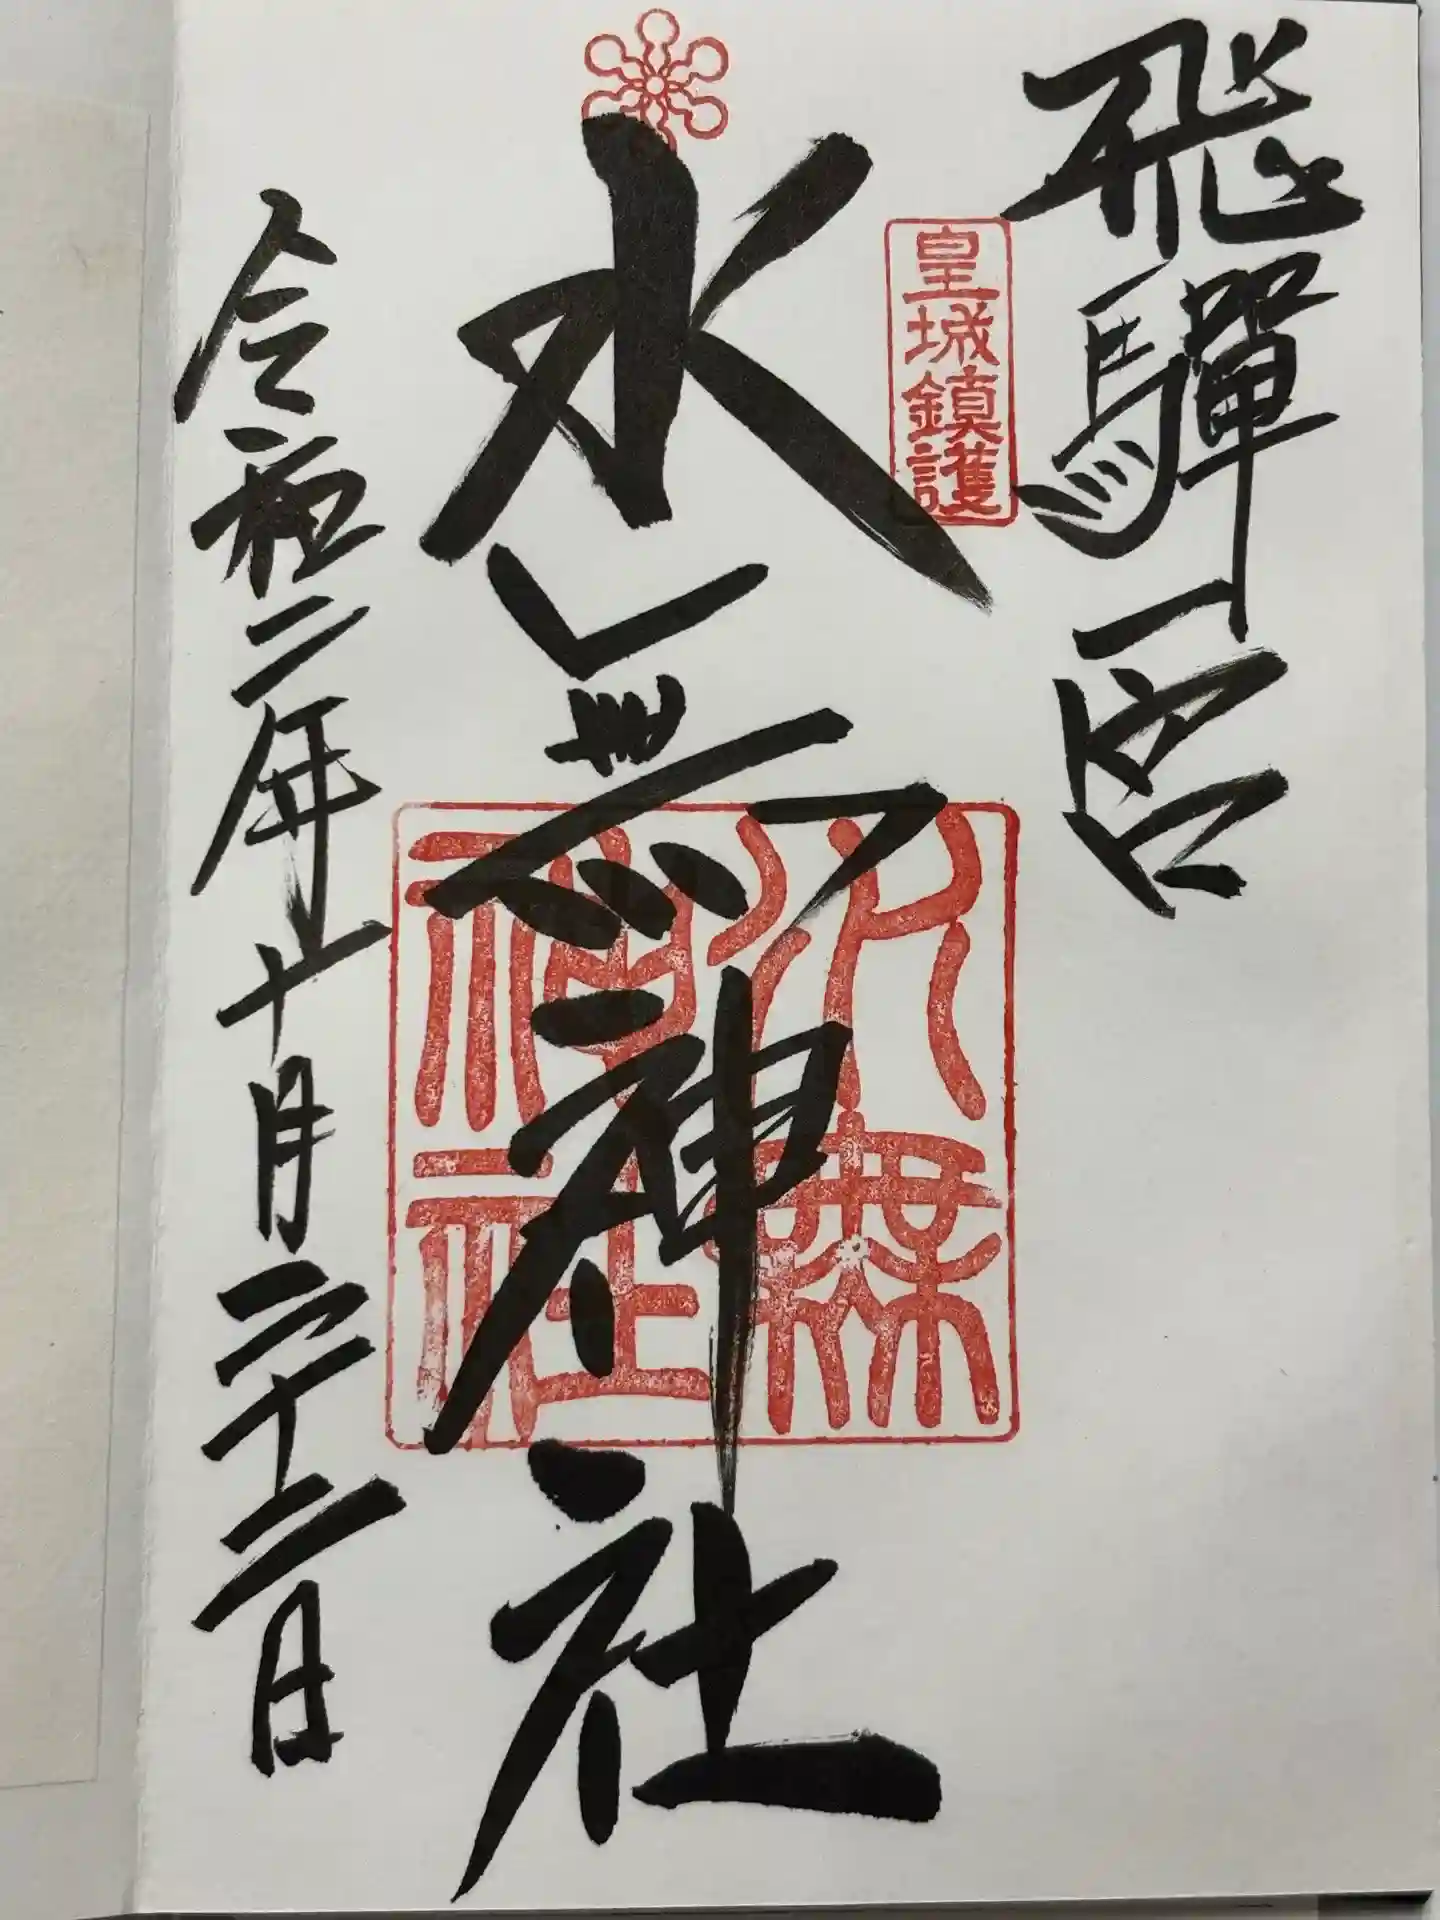 飛驒一宮
皇城鎮護
水無神社
水無
神社
令和二年十月二十二日